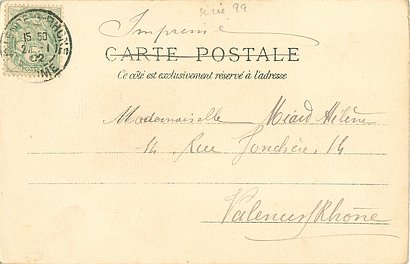 série 99
Imprimé
CARTE POSTALE
Ce côté est exclusivement réservé à l'adresse
15 50
02
Mademoiselle Miard Hélène
14, Rue Jonchère, 14
Valence s/ Rhône